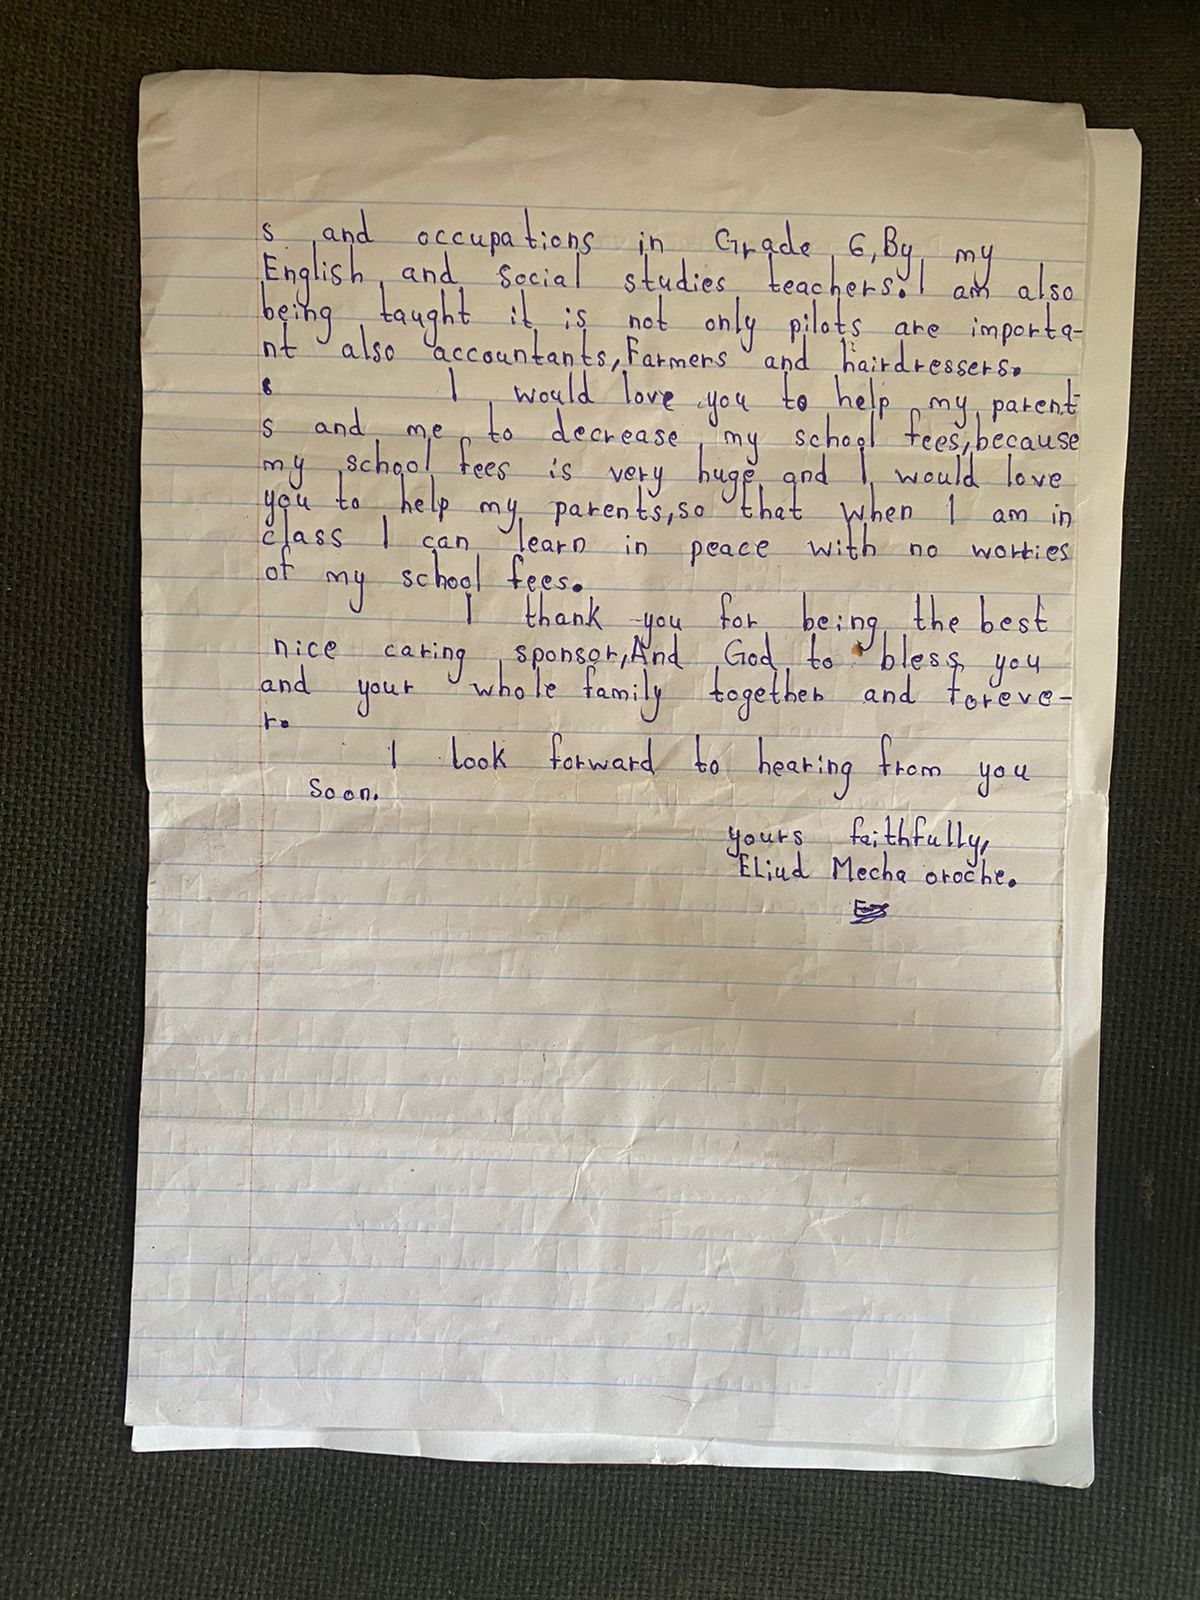 s and occupations in Grade 6, By my
English and social studies teachers. I am also
being taught it is not only pilots are importa-
nt also accountants, Farmers and hairdressers.
s I would love you to help my parent
s and me to decrease my school fees, because
my school fees is very huge and I would love
you to help my parents, so that when I am in
class I can learn in peace with no worries
of my school fees.
I thank you for being the best
nice caring sponsor, And God to bless you
and your whole family together and foreve-
r.
I look forward to hearing from you
soon.
yours faithfully,
ELiud Mecha oroche.